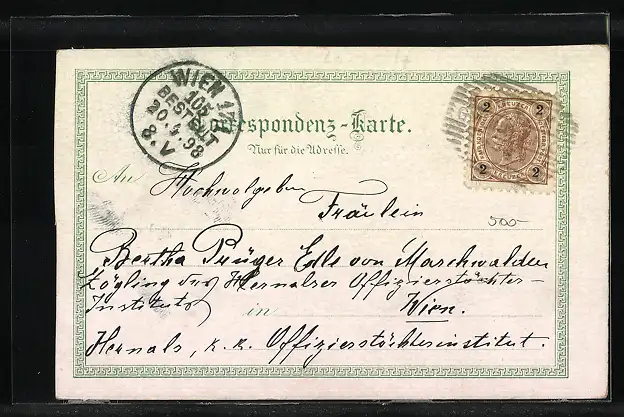 WIEN 17
10 F
BESTELLT
20.4.98
8.V
Correspondenz-Karte.
Nur für die Adresse.
2 2
2 2
An Hochwolgeboren
Fräulein
500-
Bertha Prüger Edle von Marchwalden
Zögling des Hernalser Offizierstöchter-
Instituts in Wien.
Hernals, k. k. Offizierstöchterinstitut.